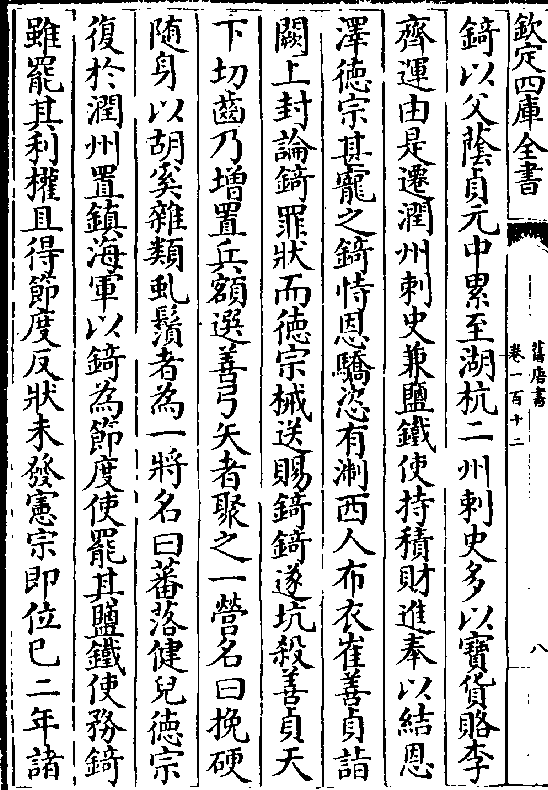 欽定四庫全書
舊唐書
卷一百十二
八
錡以父蔭貞元中累至湖杭二州刺史多以寶貨賂李
齊運由是遷潤州刺史兼鹽鐵使持積財進奉以結恩
澤德宗甚寵之錡恃恩驕恣有淛西人布衣崔善貞詣
闕上封論錡罪狀而德宗械送賜錡錡遂坑殺善貞天
下切齒乃增置兵額選善弓矢者聚之一營名曰挽硬
随身以胡奚雜類虬鬚者為一將名曰蕃落健兒德宗
復於潤州置鎮海軍以錡為節度使罷其鹽鐵使務錡
雖罷其利權且得節度反狀未發憲宗即位已二年諸